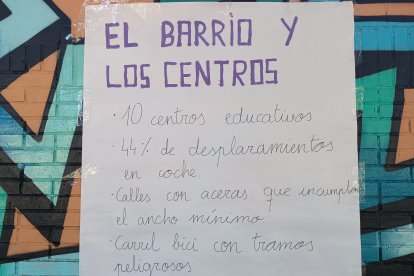 EL BARRIO Y
LOS CENTROS
· 10 centros educativos
· 44% de desplazamientos
en coche
· Calles con aceras que incumplen
el ancho mínimo
· Carril bici con tramos
peligrosos